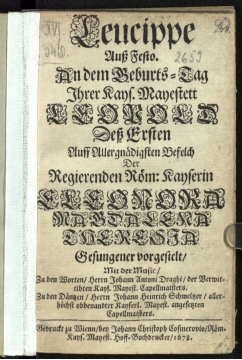 Leucippe
Auß Festo.
2659
An dem Geburts-Tag
Ihrer Kays. Mayestett
LEOPOLD
Deß Ersten
Auff Allergnädigsten Befelch
Der
Regierenden Röm: Kayserin
ELEONORA
MAGDALENA
THERESIA
Gesungener vorgestelt/
Mit der Music/
Zu den Worten/ Herrn Johann Antoni Draghi/ der Verwit-
tibten Kays. Mayest. Capellmaisters.
Zu den Däntzen/ Herrn Johann Heinrich Schmeltzer/ aller-
höchst obbenanter Kayserl. Mayest. angesetzten
Capellmaisters.
Gedruckt zu Wienn/ bey Johann Christoph Cosmerovio/ Röm.
Kays. Mayest. Hoff-Buchdrucker/ 1678.